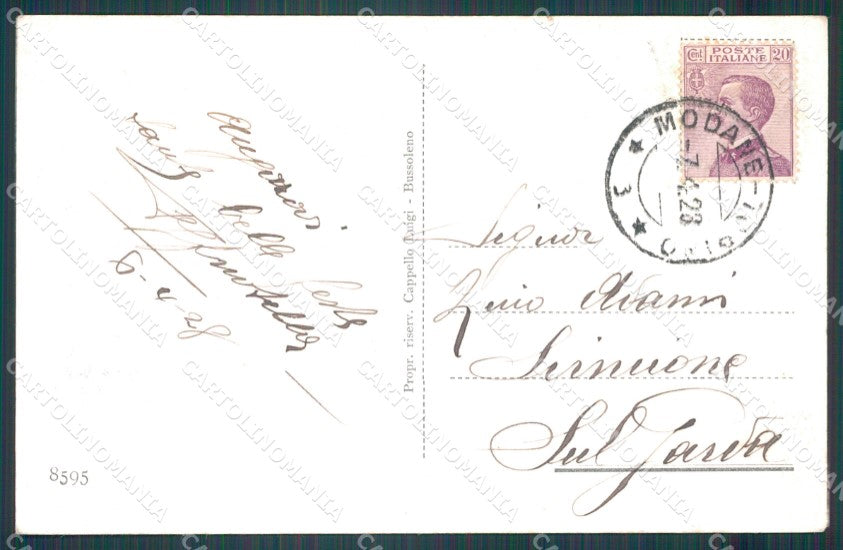 Auguroni
belle feste
6-4-28
8595
Propr. riserv. Cappello Luigi - Bussoleno
Cent POSTE ITALIANE 20
MODANE-TORINO
-7.4.28
3
Signor
Zino
Sirmione
Sul Garda
CARTOLINOMANIA